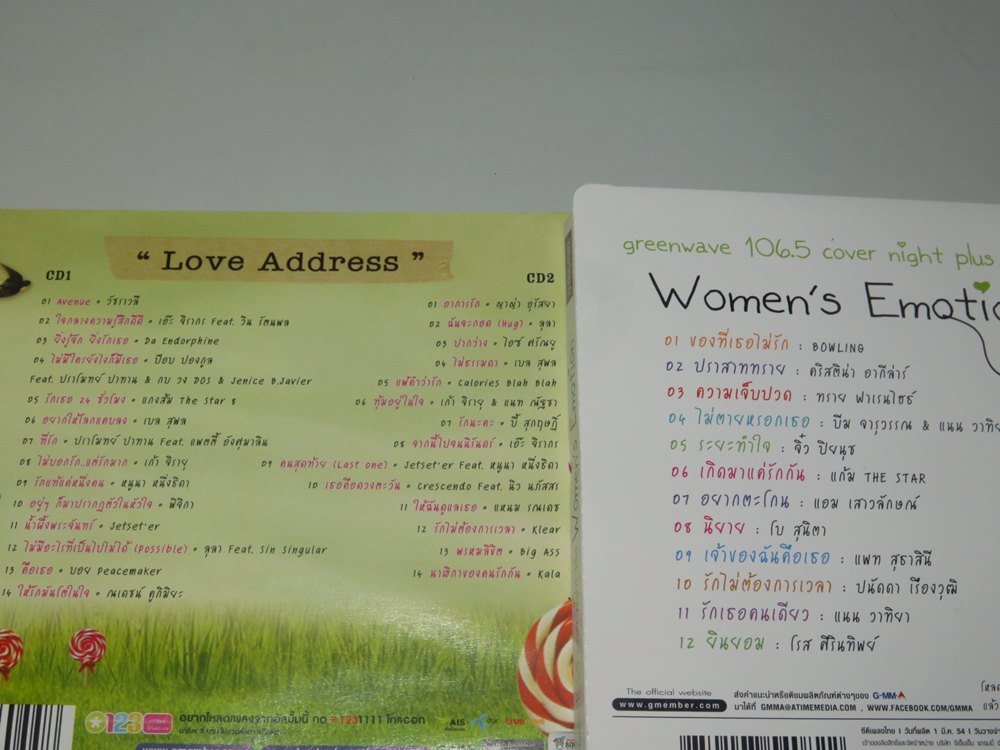 “ Love Address ”
CD1
01 Avenue • วัชราวลี
02 ใจกลางความรู้สึกดีดี • เอ๊ะ จิรากร Feat. วิน รัตนพล
03 ยิ่งรู้จัก ยิ่งรักเธอ • Da Endorphine
04 ไม่มีใครยังไงก็มีเธอ • ป๊อบ ปองกูล
Feat. ปราโมทย์ ปาทาน & กบ วง DOS & Jenice B.Javier
05 รักเธอ 24 ชั่วโมง • แกงส้ม The Star 8
06 อยากให้โลกแคบลง • เบล สุพล
07 ที่รัก • ปราโมทย์ ปาทาน Feat. แพตตี้ อังศุมาลิน
08 ไม่บอกรัก...แต่รักมาก • เก้า จิรายุ
09 รักแท้แค่หนึ่งคน • หนูนา หนึ่งธิดา
10 อยู่ๆ ก็มาปรากฏตัวในหัวใจ • พิจิกา
11 น้ำผึ้งพระจันทร์ • Jetset'er
12 ไม่มีอะไรที่เป็นไปไม่ได้ (Possible) • ลุลา Feat. Sin Singular
13 คือเธอ • บอย Peacemaker
14 ให้รักมันโตในใจ • ณเดชน์ คูกิมิยะ
CD2
01 อาการรัก • ญาญ่า อุรัสยา
02 ฉันจะกอด (Hug) • ลุลา
03 ปากว่าง • ไอซ์ ศรัณยู
04 ไม่ธรรมดา • เบล สุพล
05 แพ้คำว่ารัก • Calories Blah Blah
06 ทุ้มอยู่ในใจ • เก้า จิรายุ & แนท ณัฐชา
07 รักนะคะ • บี้ สุกฤษฎิ์
08 จากนี้ไปจนนิรันดร์ • เอ๊ะ จิรากร
09 คนสุดท้าย (Last one) • Jetset'er Feat. หนูนา หนึ่งธิดา
10 เธอคือดวงตะวัน • Crescendo Feat. นิว นภัสสร
11 ให้ฉันดูแลเธอ • แหนม รณเดช
12 รักไม่ต้องการเวลา • Klear
13 พรหมลิขิต • Big ASS
14 นาฬิกาของคนรักกัน • Kala
*123
อยากโหลดเพลงจากอัลบั้มนี้ กด *1231111 โทรออก
AIS
dtac
true move
greenwave 106.5 cover night plus
Women's Emotio
01 ของที่เธอไม่รัก : BOWLING
02 ปราสาททราย : คริสติน่า อากีล่าร์
03 ความเจ็บปวด : ทราย ฟาเรนไฮธ์
04 ไม่ตายหรอกเธอ : ปีม จารุวรรณ & แนน วาทิย
05 ระยะทำใจ : จิ๋ว ปิยนุช
06 เกิดมาแค่รักกัน : แก้ม THE STAR
07 อยากตะโกน : แอม เสาวลักษณ์
08 นิยาย : โบ สุนิตา
09 เจ้าของฉันคือเธอ : แพท สุธาสินี
10 รักไม่ต้องการเวลา : ปนัดดา เรืองวุฒิ
11 รักเธอคนเดียว : แนน วาทิยา
12 ยินยอม : โรส ศิรินทิพย์
The official website
www.gmember.com
ส่งคำแนะนำหรือติชมผลิตภัณฑ์ต่างๆของ G-MM
มาได้ที่ GMMA@ATIMEMEDIA.COM , WWW.FACEBOOK.COM/GMMA
ซีดีเพลงไทย | วันที่ผลิต 1 มี.ค. 54